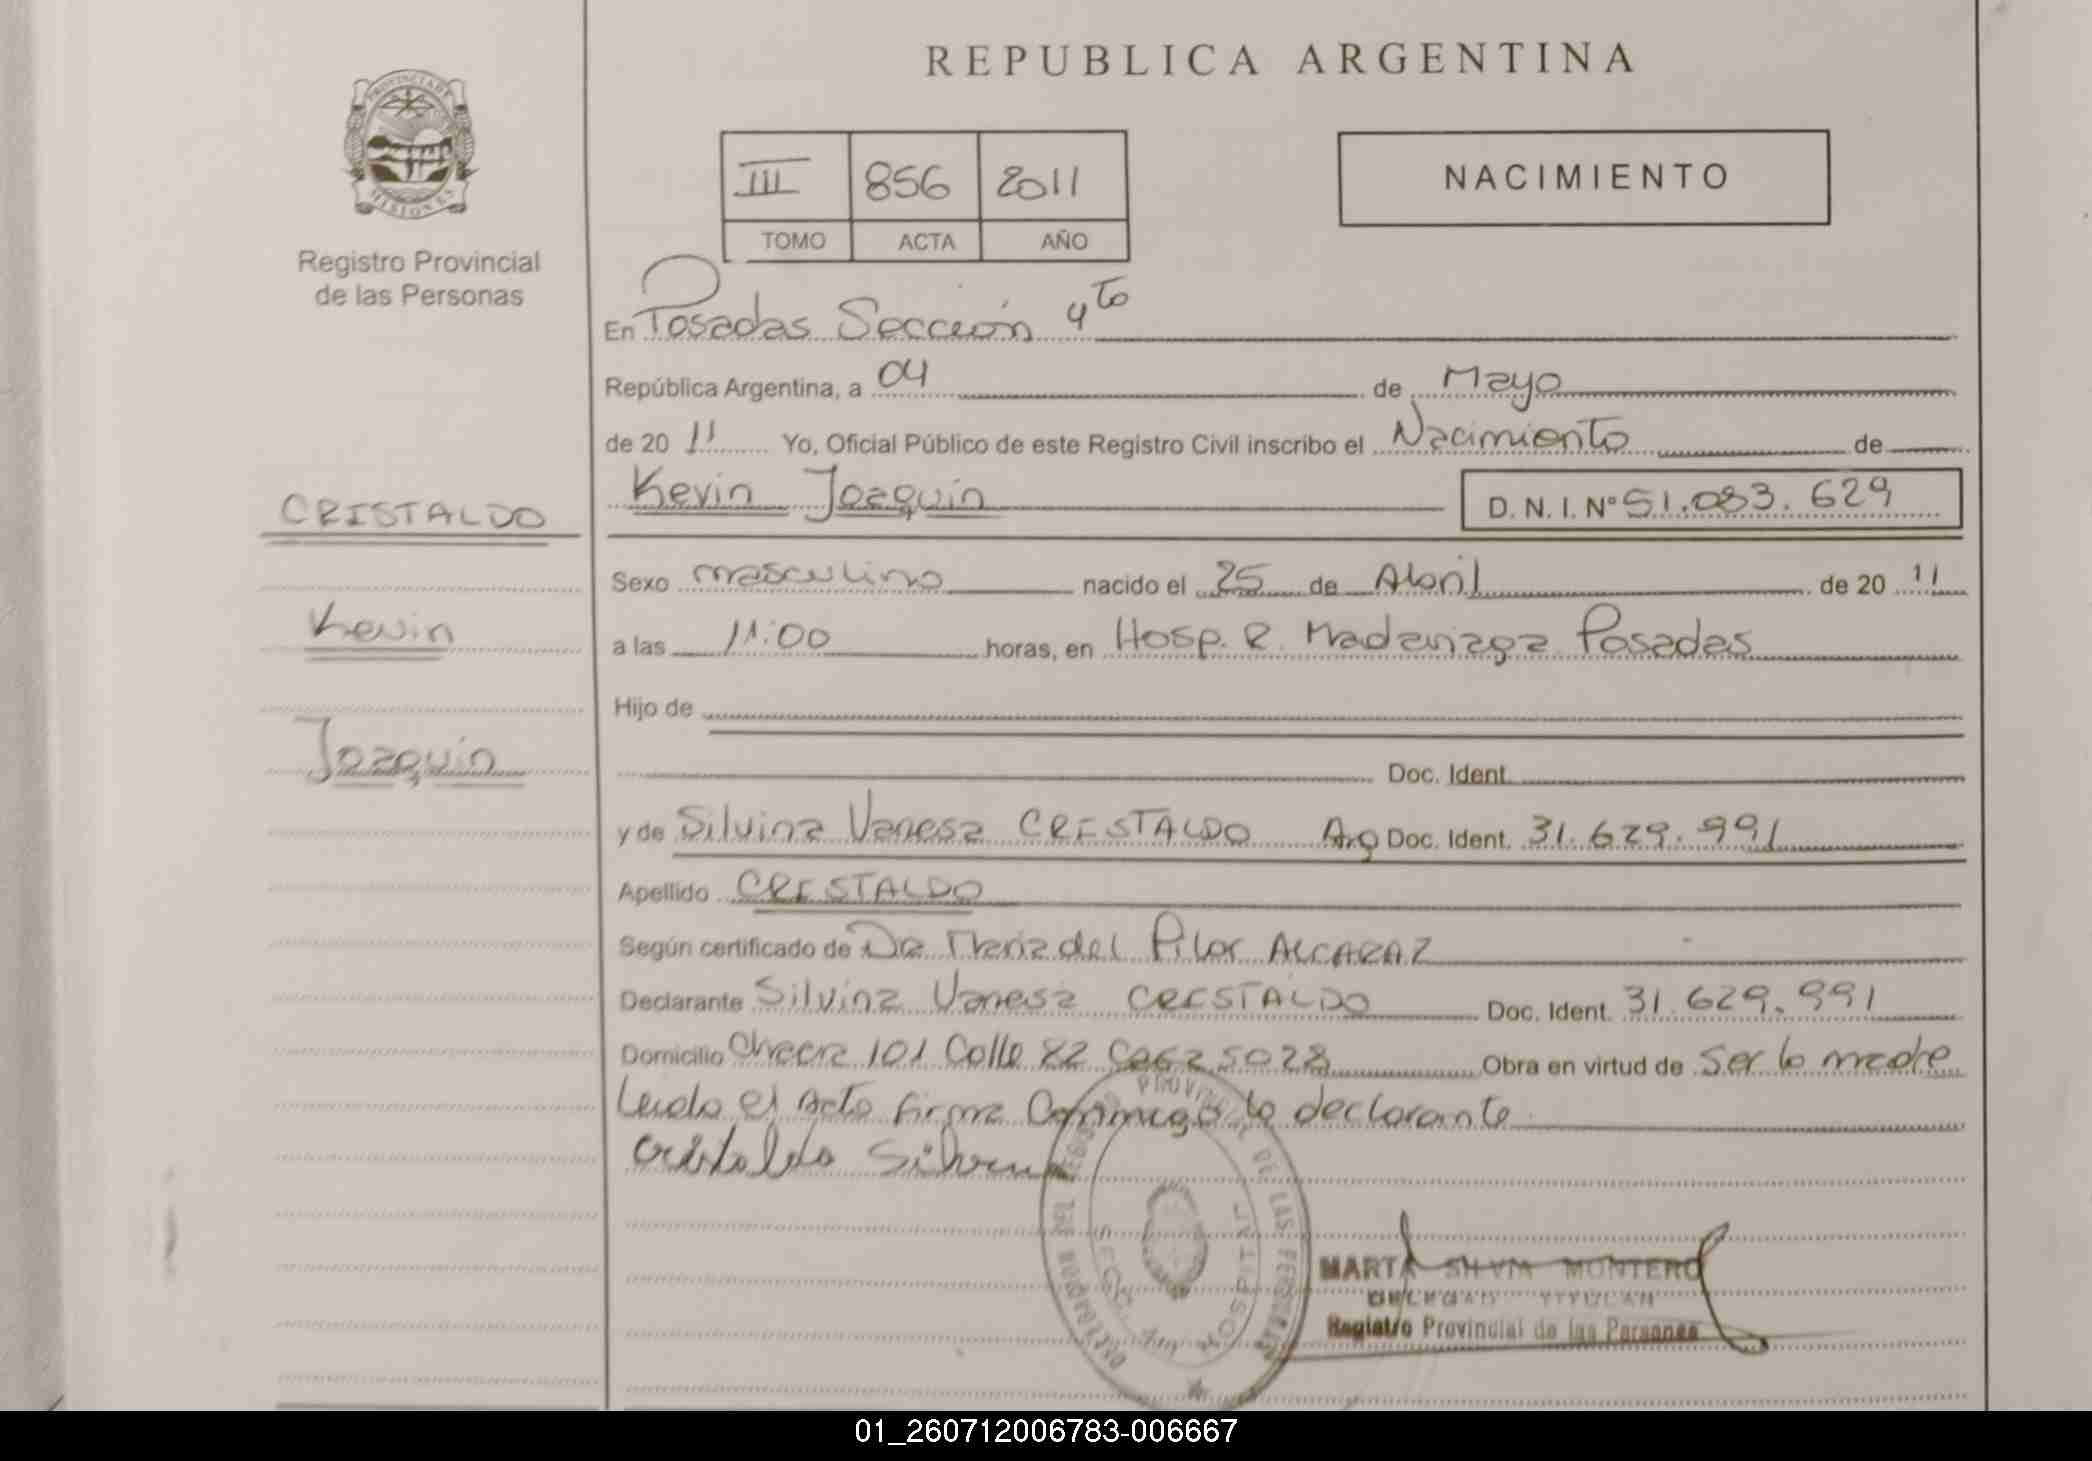 REPUBLICA ARGENTINA
PROVINCIA DE
MISIONES
Registro Provincial
de las Personas
III 856 2011
TOMO ACTA AÑO
NACIMIENTO
En Posadas Sección 4to
República Argentina, a 04 de Mayo
de 20 11 Yo, Oficial Público de este Registro Civil inscribo el Nacimiento de
Kevin Joaquin D. N. I. Nº 51.083.629
CRISTALDO
Kevin
Joaquin
Sexo masculino nacido el 25 de Abril de 20 11
a las 11:00 horas, en Hosp. R. Madariaga Posadas
Hijo de
Doc. Ident.
y de Silvina Vanesa CRISTALDO Arg Doc. Ident. 31.629.991
Apellido CRISTALDO
Según certificado de Dra Maria del Pilar ALCARAZ
Declarante Silvina Vanesa CRISTALDO Doc. Ident. 31.629.991
Domicilio Chacra 101 Calle 82 Casa 5028 Obra en virtud de Ser la madre
Leida el Acta firma Conmigo la declarante
Cristaldo Silvina
DIRECCION DEL REGISTRO PROVINCIAL DE LAS PERSONAS
HOSPITAL
MARTA SILVIA MONTERO
DELEGAD TITULAR
Registro Provincial de las Personas
01_260712006783-006667